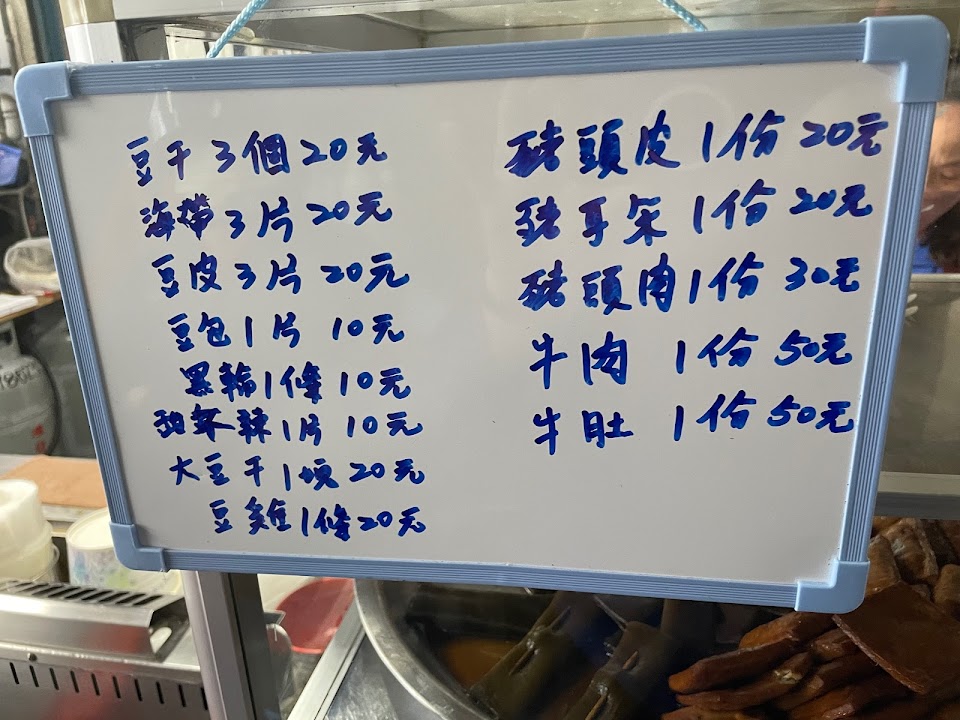 豆干3個20元
海帶3片20元
豆皮3片20元
豆包1片10元
黑輪1條10元
甜不辣1片10元
大豆干1塊20元
豆雞1條20元
豬頭皮1份20元
豬耳朵1份20元
豬頭肉1份30元
牛肉1份50元
牛肚1份50元